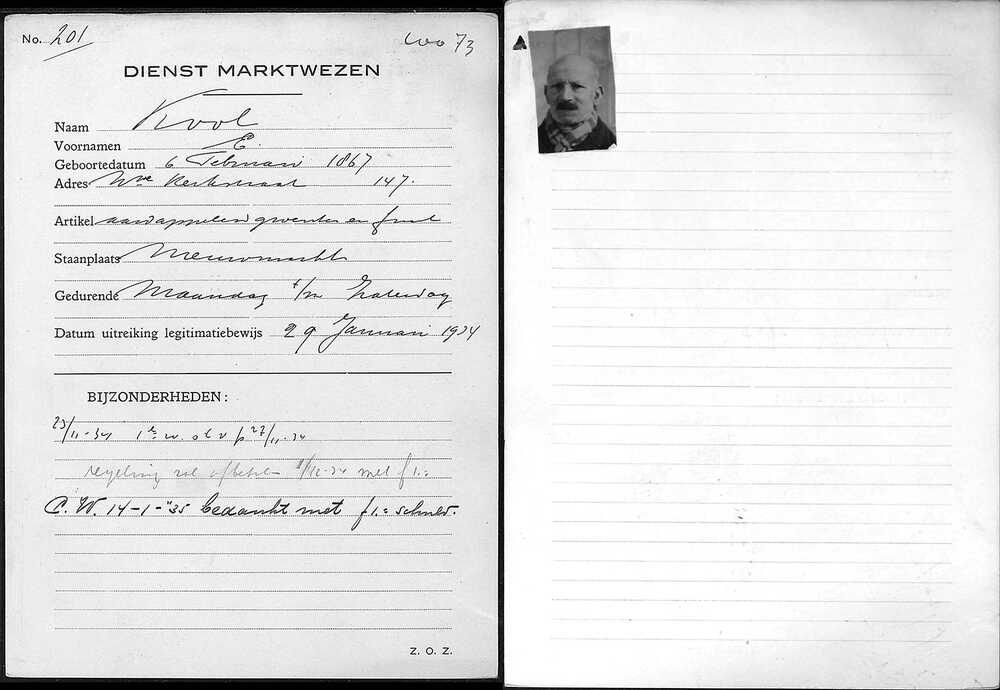 No. 201
Woo 73
DIENST MARKTWEZEN
Naam Kool
Voornamen E.
Geboortedatum 6 Februari 1867
Adres Nwe Kerkstraat 147.
Artikel aardappelen groenten en fruit
Staanplaats Nieuwmarkt
Gedurende Maandag t/m Zaterdag
Datum uitreiking legitimatiebewijs 29 Januari 1934
BIJZONDERHEDEN:
23/11-34 1e w. o t v p 27/11-34
regeling zal afbetal- 1/12-34 met f1.=
C.W. 14-1-"35 bedankt met f1.= schuld.
Z. O. Z.